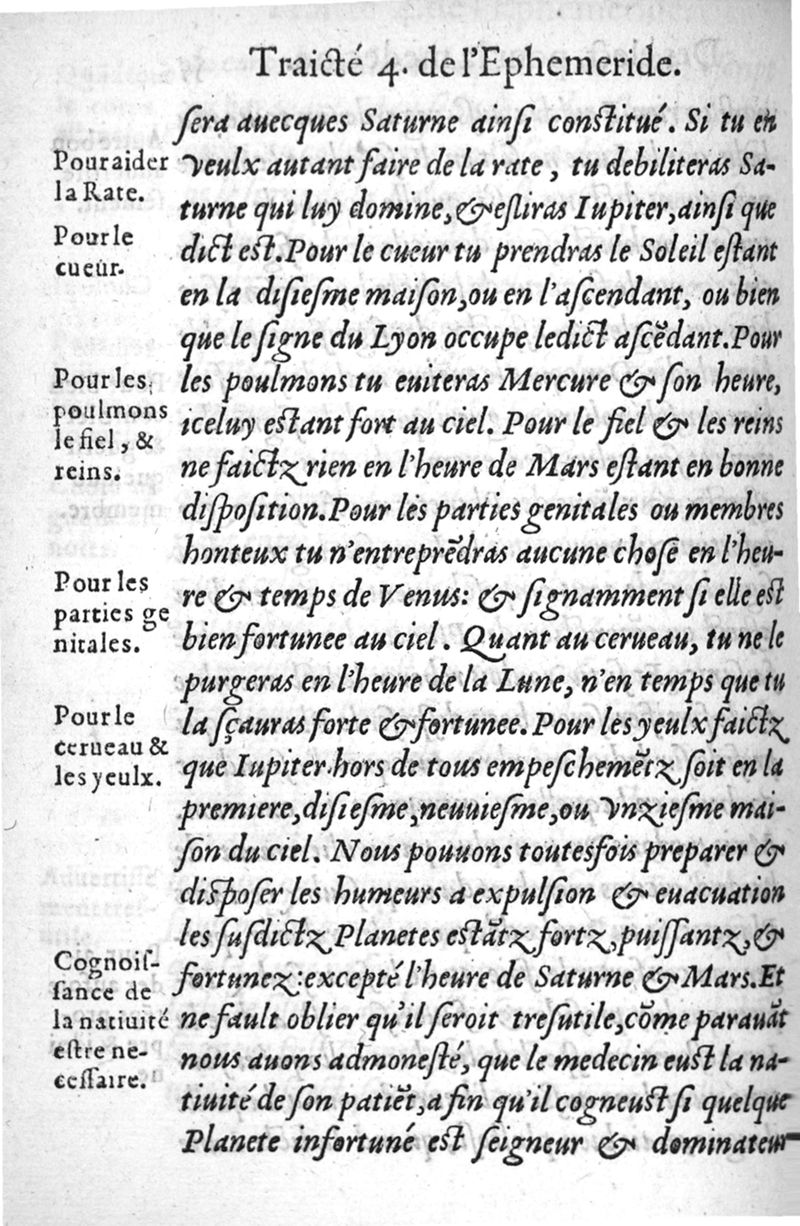 Traicté 4. de l'Ephemeride.
ſera auecques Saturne ainſi conſtitué. Si tu en
Pour aider
la Rate.
veulx autant faire de la rate, tu debiliteras Sa-
turne qui luy domine, & eſliras Iupiter, ainſi que
Pour le
cueur.
dict eſt. Pour le cueur tu prendras le Soleil eſtant
en la diſieſme maiſon, ou en l'aſcendant, ou bien
que le ſigne du Lyon occupe ledict aſcẽdant. Pour
Pour les
poulmons
le fiel, &
reins.
les poulmons tu euiteras Mercure & ſon heure,
iceluy eſtant fort au ciel. Pour le fiel & les reins
ne faictz rien en l'heure de Mars eſtant en bonne
diſpoſition. Pour les parties genitales ou membres
honteux tu n'entreprẽdras aucune choſe en l'heu-
Pour les
parties ge
nitales.
re & temps de Venus: & ſignamment ſi elle eſt
bien fortunee au ciel. Quant au cerueau, tu ne le
purgeras en l'heure de la Lune, n'en temps que tu
Pour le
cerueau &
les yeulx.
la ſçauras forte & fortunee. Pour les yeulx faictz
que Iupiter hors de tous empeſchemẽtz ſoit en la
premiere, diſieſme, neuuieſme, ou vnzieſme mai-
ſon du ciel. Nous pouuons toutesfois preparer &
diſpoſer les humeurs a expulſion & euacuation
les ſuſdictz Planetes eſtãtz fortz, puiſſantz, &
Cognoiſ-
ſance de
la natiuité
eſtre ne-
ceſſaire.
fortunez: excepté l'heure de Saturne & Mars. Et
ne fault oblier qu'il ſeroit treſutile, cõme parauãt
nous auons admoneſté, que le medecin euſt la na-
tiuité de ſon patiẽt, a fin qu'il cogneuſt ſi quelque
Planete infortuné eſt ſeigneur & dominateur